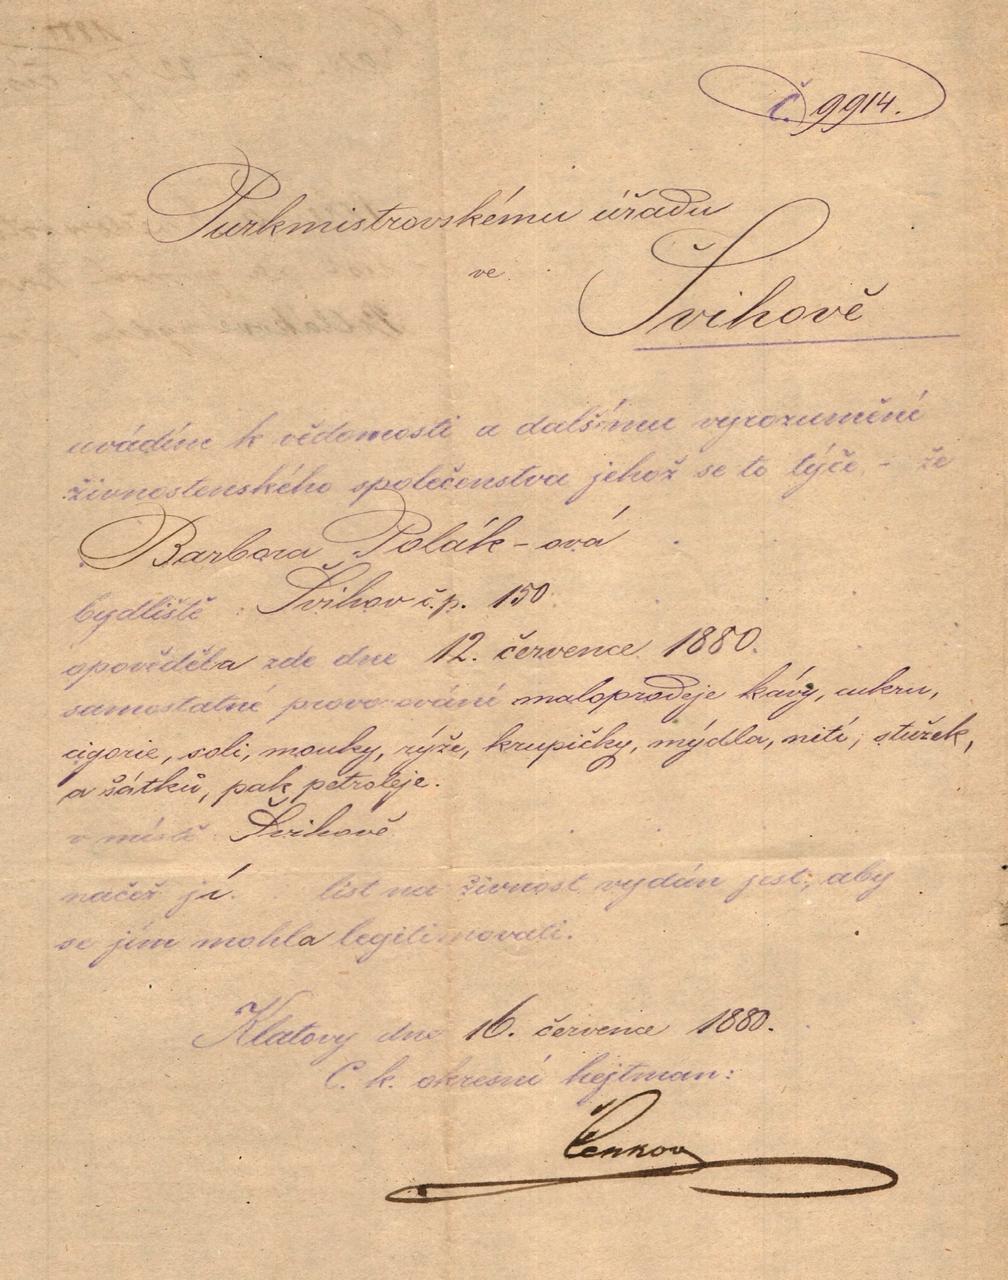 Č. 9914.
Purkmistrovskému úřadu
ve
Švihově
uvádíme k vědomosti a dalšímu vyrozumění
živnostenského společenstva jehož se to týče, - že
Barbora Polák-ová
bydliště Švihov č.p. 150
opověděla zde dne 12. července 1880.
samostatné provozování maloprodeje kávy, cukru,
cigorie, soli, mouky, rýže, krupičky, mýdla, nití, stužek,
a šátků, pak petroleje.
v místě Švihově
načež jí. list na živnost vydán jest, aby
se jím mohla legitimovati.
Klatovy dne 16. července 1880.
C. k. okresní hejtman: